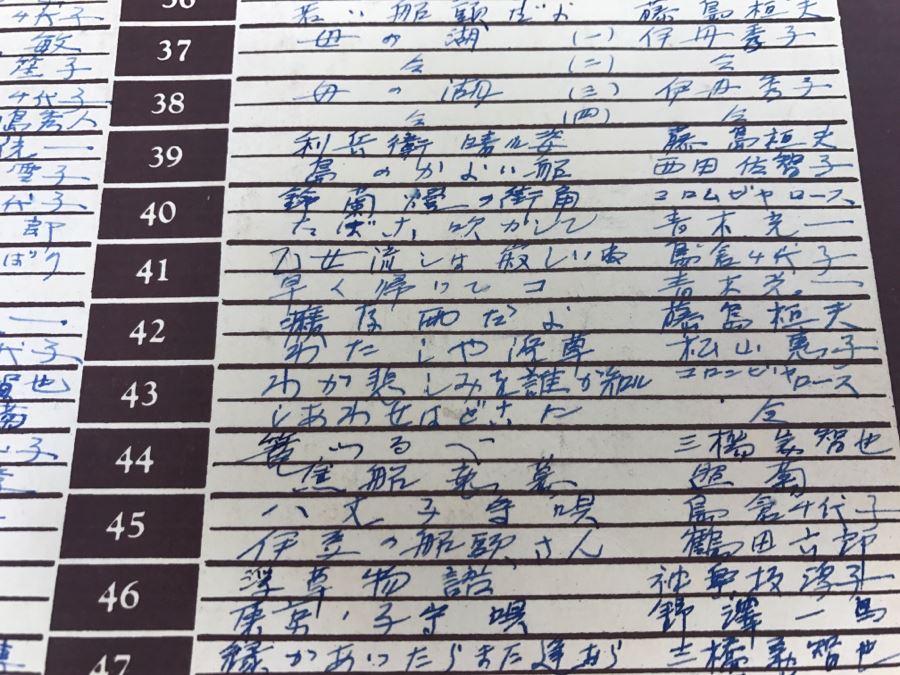 36 若い船頭だよ 藤島桓夫
37 母の湖 (一) 伊丹秀子
仝 (二) 仝
38 母の湖 (三) 伊丹秀子
仝 (四) 仝
39 利兵衛晴れ姿 藤島桓夫
島のかよい船 西田佐智子
40 鈴蘭燈の街角 コロムビヤローズ
たばこ吹かして 青木光一
41 乙女流しは寂しいな 島倉千代子
早く帰ってコ 青木光一
42 だよ 藤島桓夫
わたしや 松山恵子
43 わが悲しみを誰か知る コロンビヤローズ
しあわせはどこに 仝
44 つるべ 三橋美智也
船 照菊
45 八丈子守唄 島倉千代子
伊豆の船頭さん 鶴田六郎
46 浮草物語 神楽坂浮子
東京・子守唄 野澤一馬
47 縁があったらまた逢おう 三橋美智也
千代子
敏
笙子
千代子
島秀人
一
雪子
代子
郎
ばり
一
代子
也
菊
子